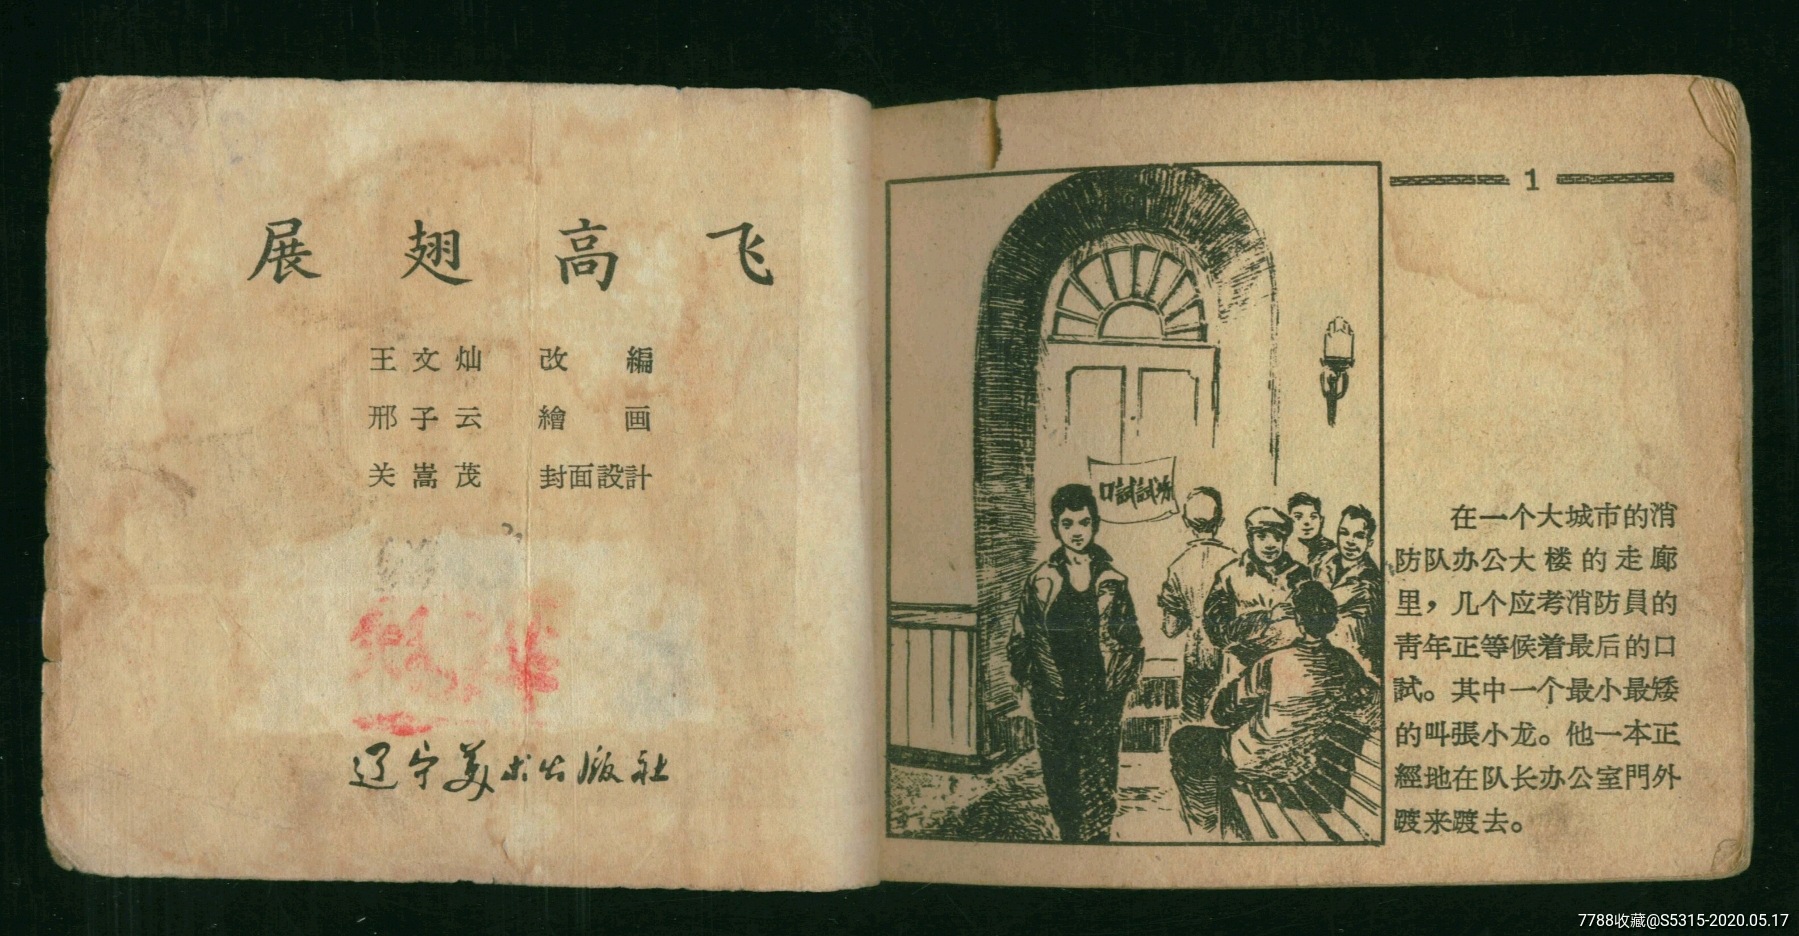 展翅高飞
王文灿 改編
邢子云 繪画
关嵩茂 封面設計
辽宁美术出版社
口試試场
1
在一个大城市的消
防队办公大楼的走廊
里，几个应考消防員的
靑年正等候着最后的口
試。其中一个最小最矮
的叫張小龙。他一本正
經地在队长办公室門外
踱来踱去。
7788收藏@S5315-2020.05.17